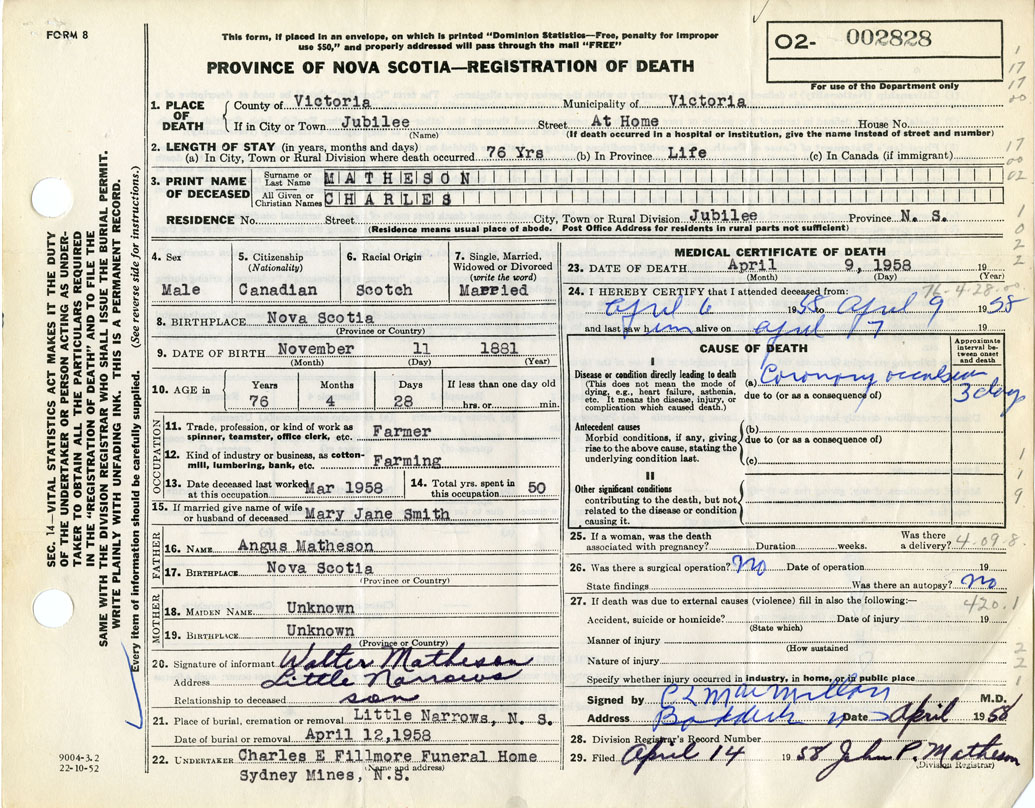 FORM 8
This form, if placed in an envelope, on which is printed "Dominion Statistics—Free, penalty for improper
use $50," and properly addressed will pass through the mail "FREE"
O2- 002828
PROVINCE OF NOVA SCOTIA—REGISTRATION OF DEATH
For use of the Department only
1. PLACE OF DEATH { County of Victoria Municipality of Victoria
If in City or Town Jubilee Street At Home House No.
(Name) (If death occurred in a hospital or institution, give the name instead of street and number)
2. LENGTH OF STAY (in years, months and days)
(a) In City, Town or Rural Division where death occurred 76 Yrs (b) In Province Life (c) In Canada (if immigrant)
3. PRINT NAME OF DECEASED { Surname or Last Name MATHESON
All Given or Christian Names CHARLES
RESIDENCE No. Street City, Town or Rural Division Jubilee Province N. S.
(Residence means usual place of abode. Post Office Address for residents in rural parts not sufficient)
4. Sex
Male
5. Citizenship
(Nationality)
Canadian
6. Racial Origin
Scotch
7. Single, Married,
Widowed or Divorced
(write the word)
Married
8. BIRTHPLACE Nova Scotia
(Province or Country)
9. DATE OF BIRTH November 11 1881
(Month) (Day) (Year)
10. AGE in Years Months Days If less than one day old
76 4 28 hrs. or min.
OCCUPATION
11. Trade, profession, or kind of work as
spinner, teamster, office clerk, etc. Farmer
12. Kind of industry or business, as cotton-
mill, lumbering, bank, etc. Farming
13. Date deceased last worked
at this occupation Mar 1958
14. Total yrs. spent in
this occupation 50
15. If married give name of wife
or husband of deceased Mary Jane Smith
FATHER
16. NAME Angus Matheson
17. BIRTHPLACE Nova Scotia
(Province or Country)
MOTHER
18. MAIDEN NAME Unknown
19. BIRTHPLACE Unknown
(Province or Country)
20. Signature of informant Walter Matheson
Address Little Narrows
Relationship to deceased son
21. Place of burial, cremation or removal Little Narrows, N. S.
Date of burial or removal April 12,1958
22. UNDERTAKER Charles E Fillmore Funeral Home
(Name and address)
Sydney Mines, N.S.
MEDICAL CERTIFICATE OF DEATH
23. DATE OF DEATH April 9, 1958 19
(Month) (Day) (Year)
76-4-28
24. I HEREBY CERTIFY that I attended deceased from:
April 6 1958 to April 9 1958
and last saw him alive on April 7 19
CAUSE OF DEATH
Approximate
interval be-
tween onset
and death
I
Disease or condition directly leading to death
(This does not mean the mode of
dying, e.g., heart failure, asthenia,
etc. It means the disease, injury, or
complication which caused death.)
(a) Coronary occlusion
due to (or as a consequence of)
3 days
Antecedent causes
Morbid conditions, if any, giving
rise to the above cause, stating the
underlying condition last.
(b)
due to (or as a consequence of)
(c)
II
Other significant conditions
contributing to the death, but not
related to the disease or condition
causing it.
25. If a woman, was the death
associated with pregnancy? Duration weeks. Was there
a delivery?
4-09-8.
26. Was there a surgical operation? No Date of operation 19
State findings Was there an autopsy? No
27. If death was due to external causes (violence) fill in also the following:—
420.1
Accident, suicide or homicide? Date of injury 19
(State which)
Manner of injury
(How sustained
Nature of injury
Specify whether injury occurred in industry, in home, or in public place
Signed by C L MacMillan M.D.
Address Baddeck Date April 1958
28. Division Registrar's Record Number
29. Filed April 14 1958 John P. Matheson
(Division Registrar)
SEC. 14—VITAL STATISTICS ACT MAKES IT THE DUTY
OF THE UNDERTAKER OR PERSON ACTING AS UNDER-
TAKER TO OBTAIN ALL THE PARTICULARS REQUIRED
IN THE "REGISTRATION OF DEATH" AND TO FILE THE
SAME WITH THE DIVISION REGISTRAR WHO SHALL ISSUE THE BURIAL PERMIT.
WRITE PLAINLY WITH UNFADING INK. THIS IS A PERMANENT RECORD.
Every item of information should be carefully supplied. (See reverse side for instructions.)
9004-3.2
22-10-52